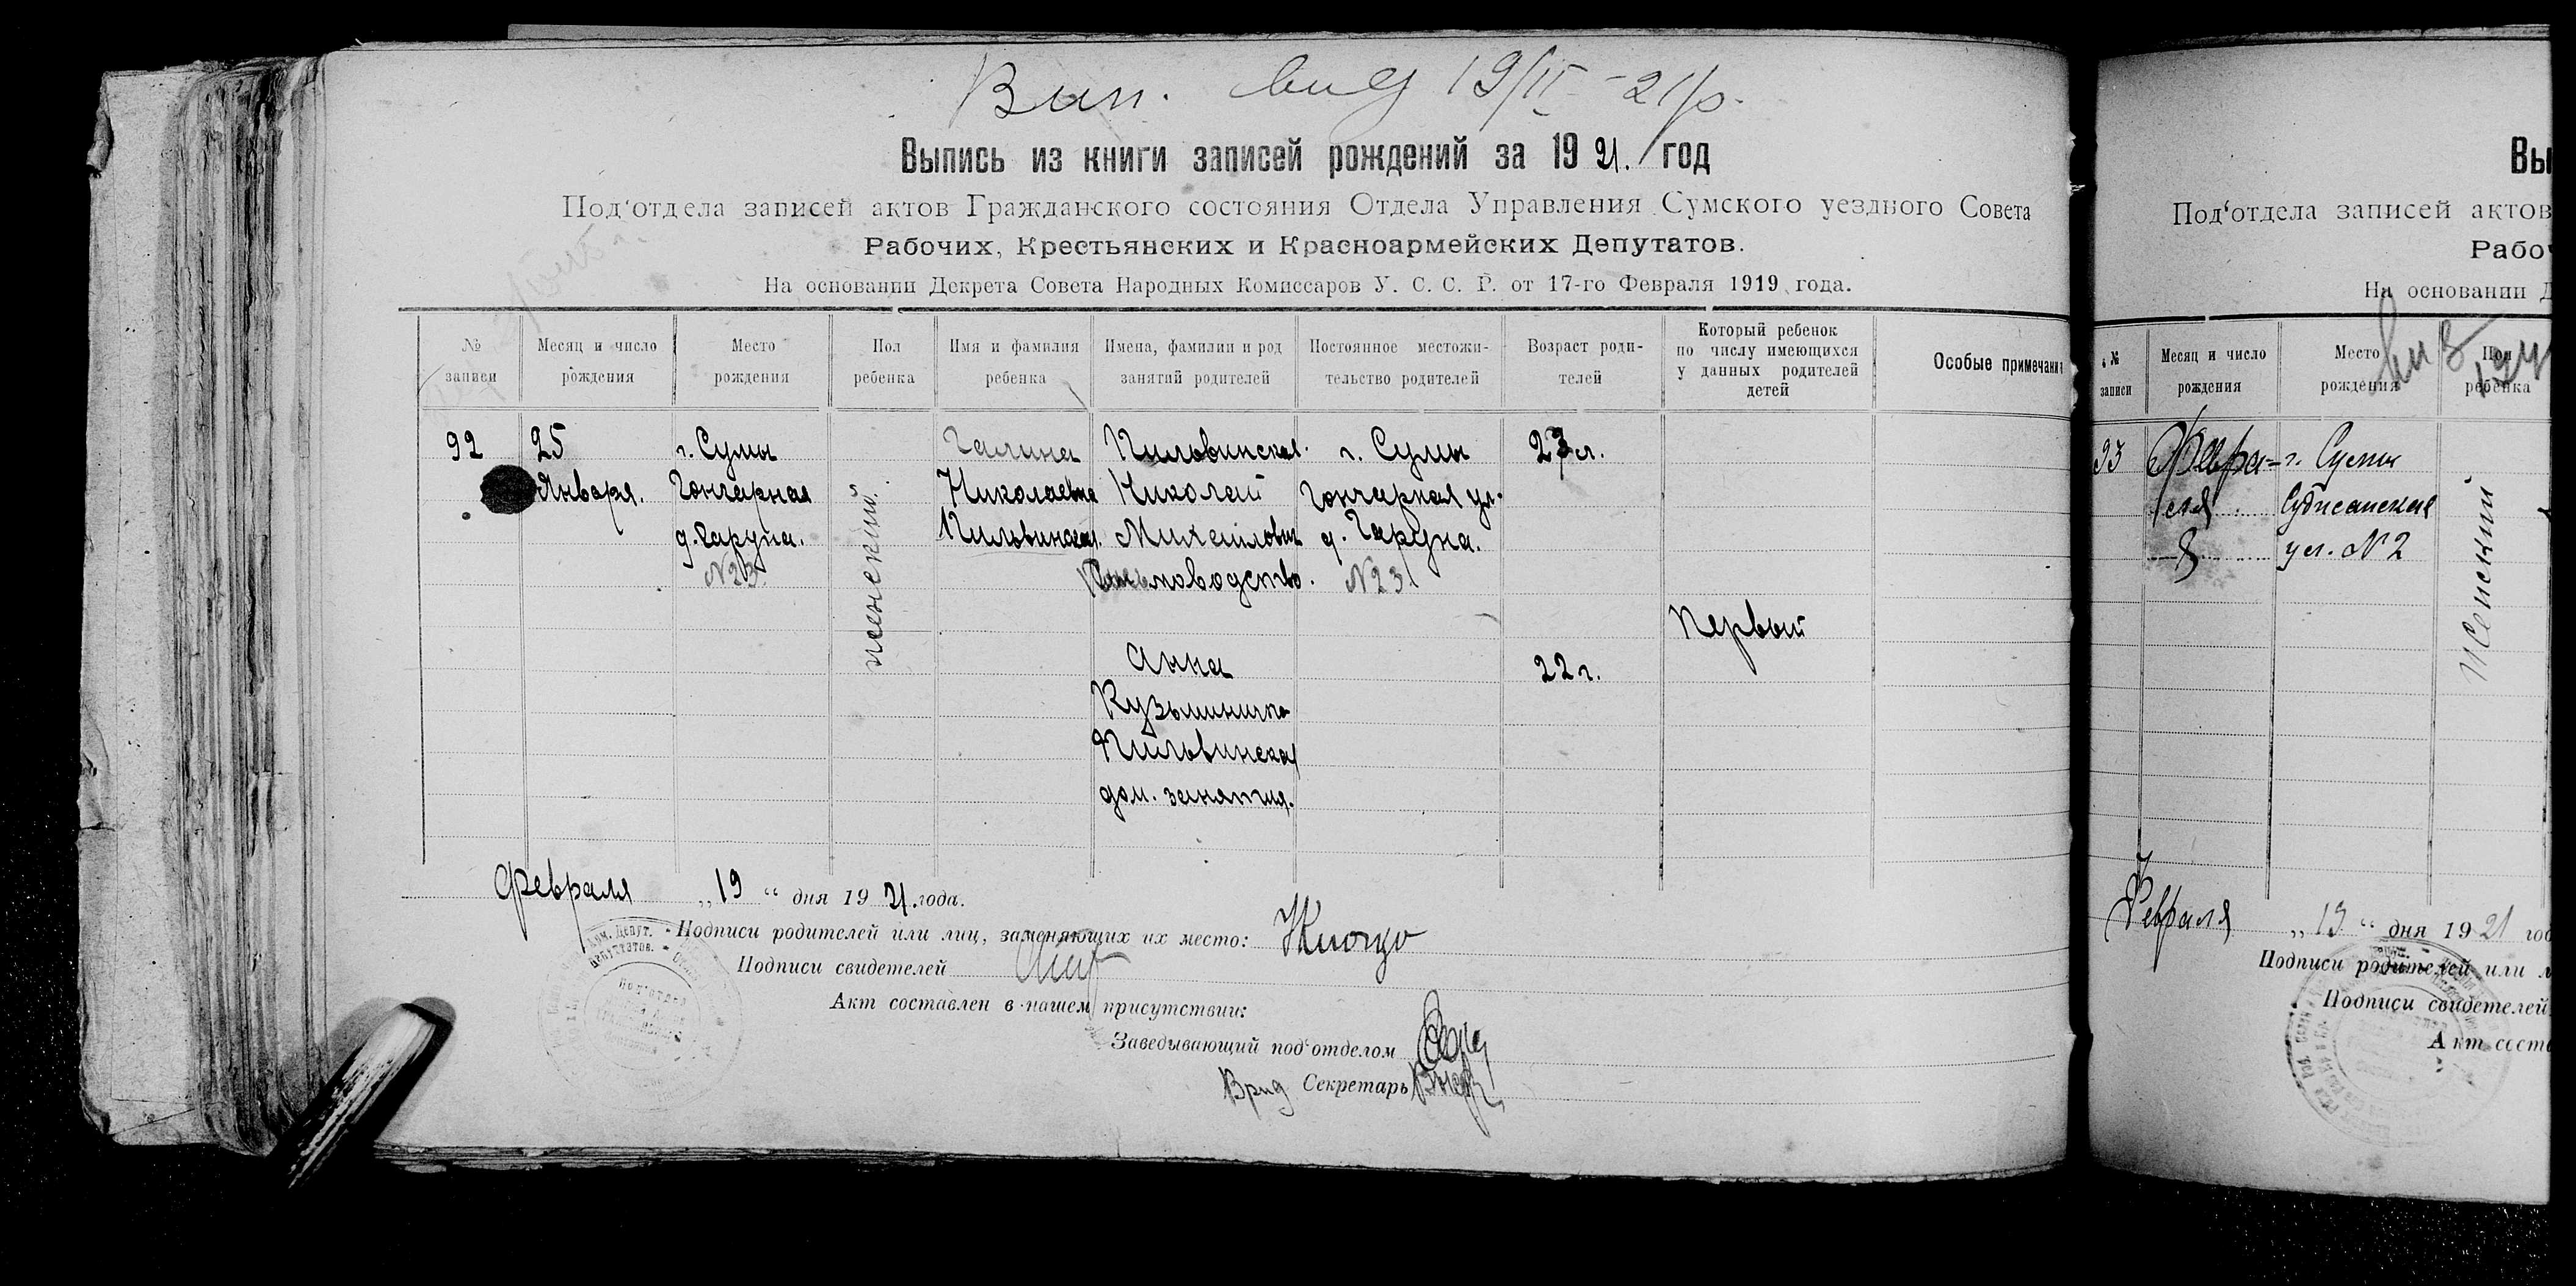 Вип. вид 19/II - 21 р.
Выпись из книги записей рождений за 1921. год
Под'отдела записей актов Гражданского состояния Отдела Управления Сумского уездного Совета
Рабочих, Крестьянских и Красноармейских Депутатов.
На основании Декрета Совета Народных Комиссаров У. С. С. Р. от 17-го Февраля 1919 года.
№ записи
Месяц и число рождения
Место рождения
Пол ребенка
Имя и фамилия ребенка
Имена, фамилии и род занятий родителей
Постоянное местожительство родителей
Возраст родителей
Который ребенок по числу имеющихся у данных родителей детей
Особые примечания
92
25
Января.
г. Сумы
Гончарная
д. Гаруна.
№23
женский
Галина
Николаевна
Пильвинская.
Пильвинский
Николай
Михайлович
Письмоводство.
г. Сумы
Гончарная ул.
д. Гаруна.
№23
23 л.
Анна
Кузьминична
Пильвинская
дом. занятия.
22 г.
Первый
Февраля „19" дня 1921. года.
Подписи родителей или лиц, заменяющих их место:
Подписи свидетелей
Акт составлен в нашем присутствии:
Заведывающий под'отделом
Врид Секретарь
Вы
Под'отдела записей актов
Рабоч
На основании Д
№ записи
Месяц и число рождения
Место рождения
Пол ребенка
93
Февраля
8
г. Сумы
ул. №2
Женский
Февраля „13" дня 1921 год
Подписи родителей или л
Подписи свидетелей
Акт соста